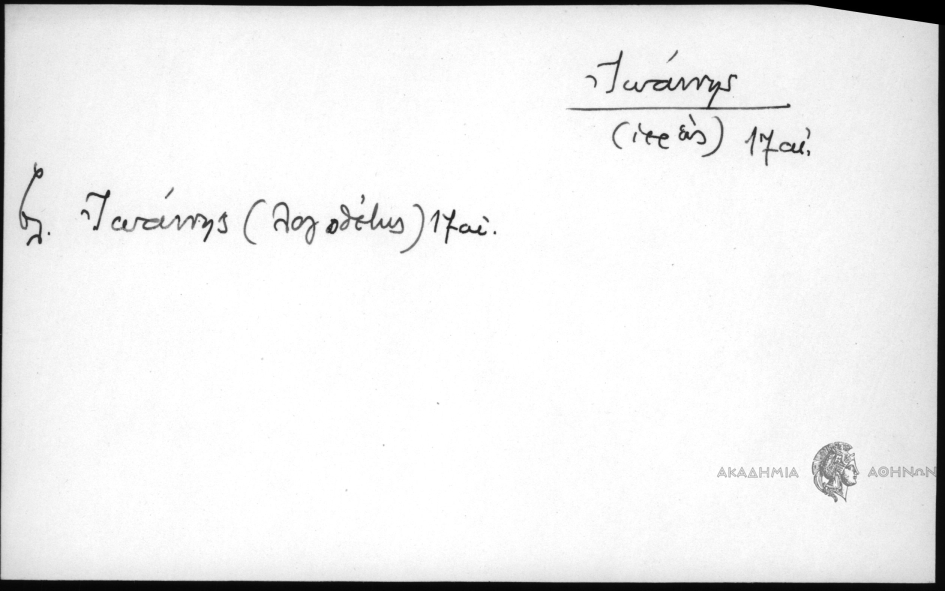 Ἰωάννης
(ἱερεὺς) 17 αἰ.
βλ. Ἰωάννης (λογοθέτης) 17 αἰ.
ΑΚΑΔΗΜΙΑ ΑΘΗΝΩΝ